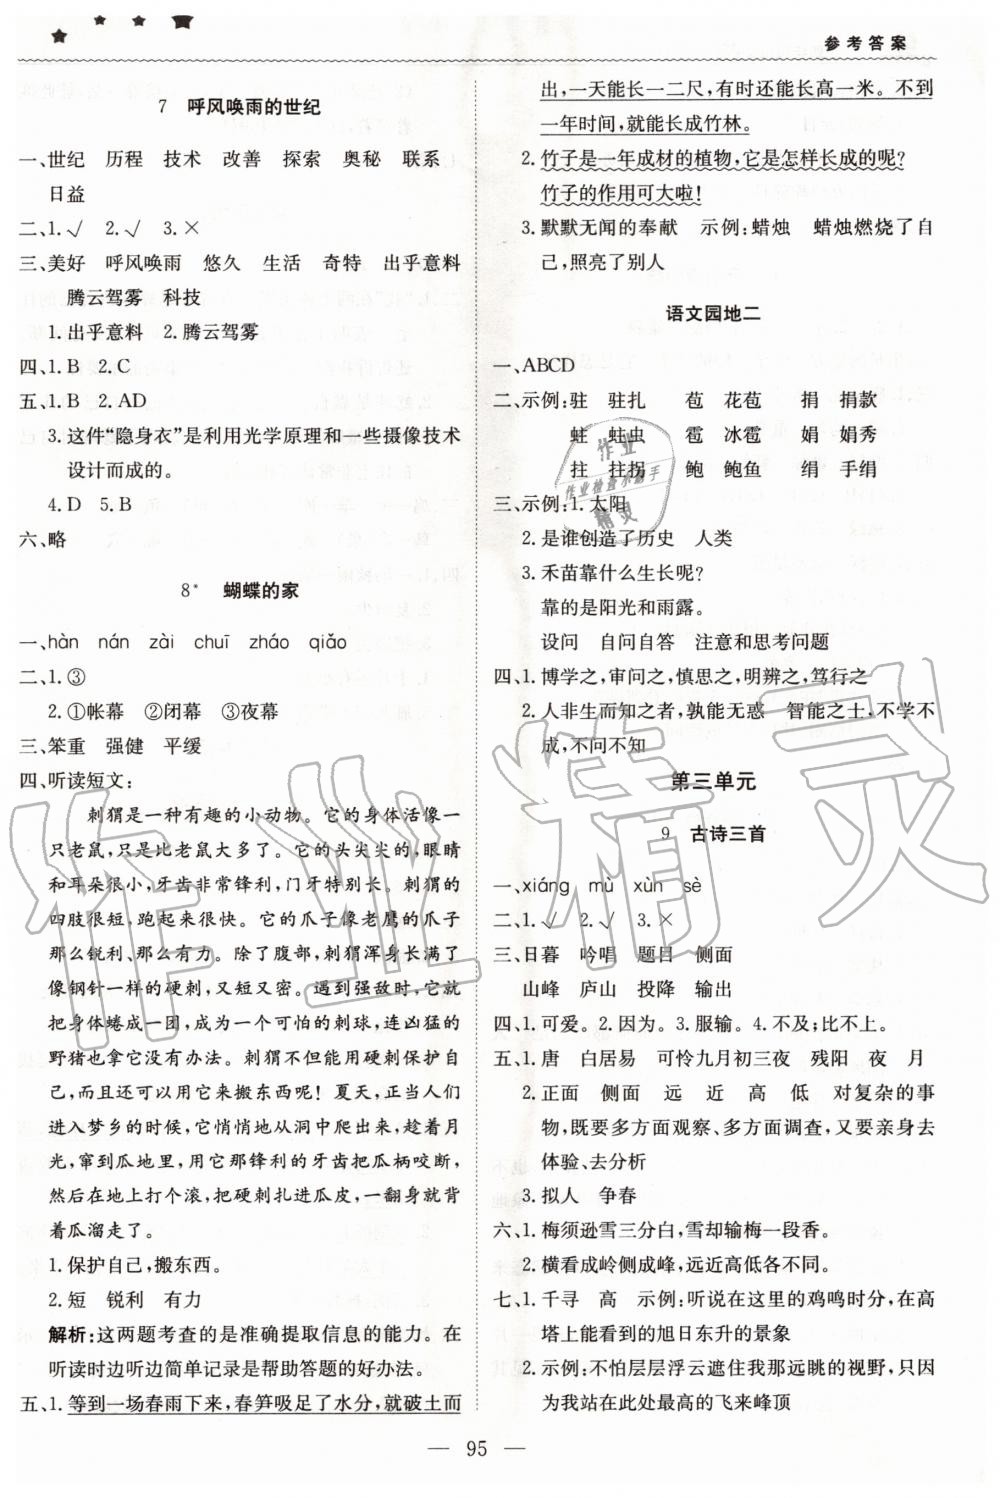 参考答案
7 呼风唤雨的世纪
一、世纪 历程 技术 改善 探索 奥秘 联系
日益
二、1.√ 2.√ 3.×
三、美好 呼风唤雨 悠久 生活 奇特 出乎意料
腾云驾雾 科技
1.出乎意料 2.腾云驾雾
四、1.B 2.C
五、1.B 2.AD
3.这件“隐身衣”是利用光学原理和一些摄像技术
设计而成的。
4.D 5.B
六、略
8* 蝴蝶的家
一、hàn nán zài chuī zháo qiǎo
二、1.③
2.①帐幕 ②闭幕 ③夜幕
三、笨重 强健 平缓
四、听读短文：
刺猬是一种有趣的小动物。它的身体活像一
只老鼠，只是比老鼠大一些。它的头尖尖的，眼睛
和耳朵很小，牙齿非常锋利，门牙特别长。刺猬的
四肢很短，跑起来很快。它的爪子像老鹰的爪子
那么锐利、那么有力。除了腹部，刺猬浑身长满了
像钢针一样的硬刺，又短又密。遇到强敌时，它就
把身体蜷成一团，成为一个可怕的刺球，连凶猛的
野猪也拿它没有办法。刺猬不但能用硬刺保护自
己，而且还可以用它来搬东西呢！夏天，正当人们
进入梦乡的时候，它悄悄地从洞中爬出来，趁着月
光，窜到瓜地里，用那锋利的牙齿把瓜柄咬断，
然后在地上打个滚，把硬刺扎进瓜皮，一翻身就背
着瓜溜走了。
1.保护自己，搬东西。
2.短 锐利 有力
解析：这两题考查的是准确提取信息的能力。在
听读时边听边简单记录是帮助答题的好办法。
五、1.等到一场春雨下来，春笋吸足了水分，就破土而
出，一天能长一二尺，有时还能长高一米。不到
一年时间，就能长成竹林。
2.竹子是一年成材的植物，它是怎样长成的呢？
竹子的作用可大啦！
3.默默无闻的奉献 示例：蜡烛 蜡烛燃烧了自
己，照亮了别人
语文园地二
一、ABCD
二、示例：驻 驻扎 苞 花苞 捐 捐款
蛀 蛀虫 雹 冰雹 娟 娟秀
拄 拄拐 鲍 鲍鱼 绢 手绢
三、示例：1.太阳
2.是谁创造了历史 人类
3.禾苗靠什么生长呢？
靠的是阳光和雨露。
设问 自问自答 注意和思考问题
四、1.博学之，审问之，慎思之，明辨之，笃行之
2.人非生而知之者，孰能无惑 智能之士，不学不
成，不问不知
第三单元
9 古诗三首
一、xiáng mù xùn sè
二、1.√ 2.√ 3.×
三、日暮 吟唱 题目 侧面
山峰 庐山 投降 输出
四、1.可爱。2.因为。3.服输。4.不及；比不上。
五、1.唐 白居易 可怜九月初三夜 残阳 夜 月
2.正面 侧面 远 近 高 低 对复杂的事
物，既要多方面观察、多方面调查，又要亲身去
体验、去分析
3.拟人 争春
六、1.梅须逊雪三分白，雪却输梅一段香。
2.横看成岭侧成峰，远近高低各不同。
七、1.千寻 高 示例：听说在这里的鸡鸣时分，在高
塔上能看到的旭日东升的景象
2.示例：不怕层层浮云遮住我那远眺的视野，只
因为我站在此处最高的飞来峰顶
— 95 —
作业精灵
作业
作业检查小助手
精灵